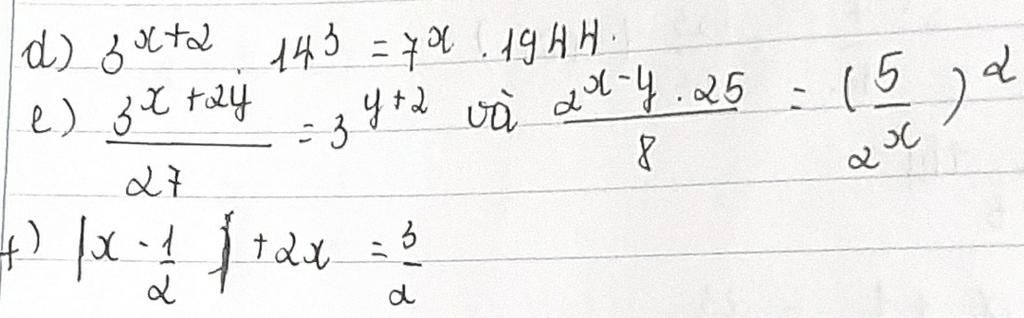 d) 3^{x+2} . 14^3 = 7^x . 1944.
e) \frac{3^{x+2y}}{27} = 3^{y+2} và \frac{2^{x-y} . 25}{8} = (\frac{5}{2^x})^2
f) |x - \frac{1}{2}| + 2x = \frac{3}{2}